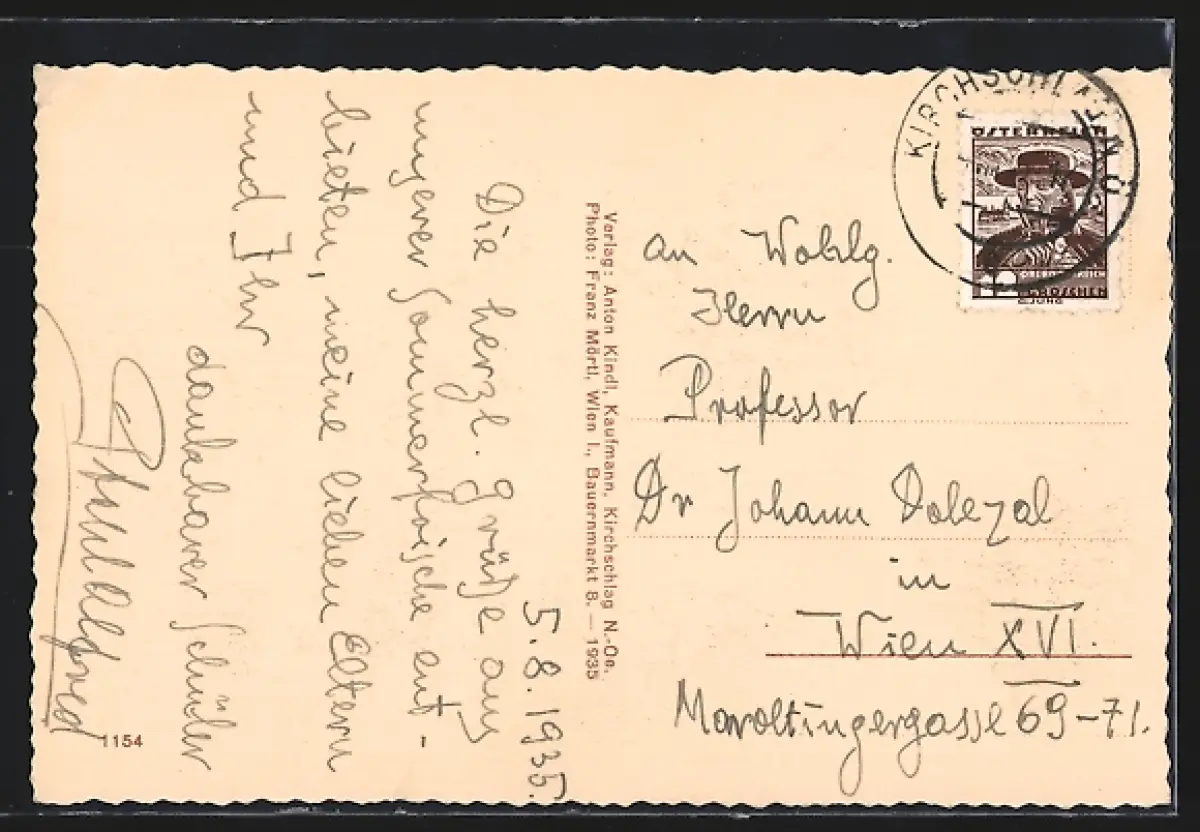 5. 8. 1935.
Die herzl. Grüße aus
unserer Sommerfrische ent
bieten, meine lieben Eltern
und Ihr
dankbarer Schüler
Alfred
1154
I
Verlag: Anton Kindl, Kaufmann, Kirchschlag N.-Oe.
Photo: Franz Mörtl, Wien I., Bauernmarkt 8. — 1935
KIRCHSCHLAG N.Ö
ÖSTERREICH
OBERÖSTERREICH
12 GROSCHEN
G.JUNG
An Wohlg.
Herrn
Professor
Dr Johann Dolezal
in
Wien XVI.
Maroltingergasse 69-71.